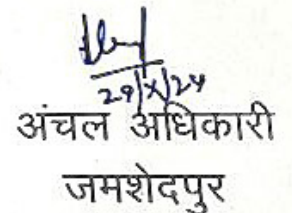 29/X/24
अंचल अधिकारी
जमशेदपुर